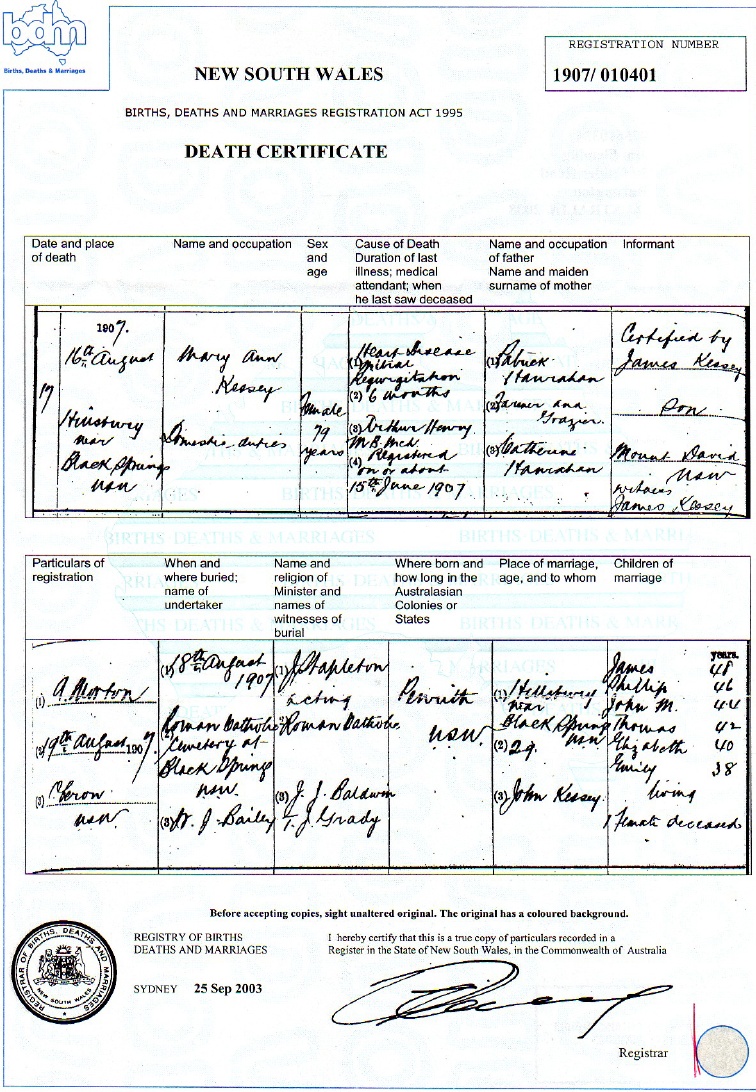 bdm
Births, Deaths & Marriages
REGISTRATION NUMBER
1907/ 010401
NEW SOUTH WALES
BIRTHS, DEATHS AND MARRIAGES REGISTRATION ACT 1995
DEATH CERTIFICATE
Date and place
of death
Name and occupation
Sex
and
age
Cause of Death
Duration of last
illness; medical
attendant; when
he last saw deceased
Name and occupation
of father
Name and maiden
surname of mother
Informant
1907.
16th August
Hillsbury
near
Black Springs
nsw
Mary Ann
Kessey
Domestic duties
Female
79
years
Heart Disease
(1) Mitral
Regurgitation
(2) 6 months
(3) Arthur Henry
Registered
(4) on or about
15th June 1907
(1) Patrick
Hanrahan
(2) Farmer and
Grazier.
(3) Catherine
Hanrahan
Certified by
James Kessey
Son
Mount David
nsw
witness
James Kessey
Particulars of
registration
When and
where buried;
name of
undertaker
Name and
religion of
Minister and
names of
witnesses of
burial
Where born and
how long in the
Australasian
Colonies or
States
Place of marriage,
age, and to whom
Children of
marriage
(1) A. Morton
(2) 19th August 1907.
(3) Oberon
nsw.
(1) 18th August
1907
Roman Catholic
Cemetery at
Black Springs
nsw.
(3) W. J. Bailey
(1) J. Stapleton
acting
Roman Catholic
(3) J. J. Baldwin
T. J. Grady
Penrith
nsw.
(1) Hillsbury
near
Black Springs
nsw
(2) 29.
(3) John Kessey.
years.
James 48
Phillip 46
John M. 44
Thomas 42
Elizabeth 40
Emily 38
living
1 female deceased
Before accepting copies, sight unaltered original. The original has a coloured background.
REGISTRY OF BIRTHS
DEATHS AND MARRIAGES
SYDNEY 25 Sep 2003
I hereby certify that this is a true copy of particulars recorded in a
Register in the State of New South Wales, in the Commonwealth of Australia
REGISTRAR OF BIRTHS, DEATHS AND MARRIAGES
NEW SOUTH WALES
Registrar